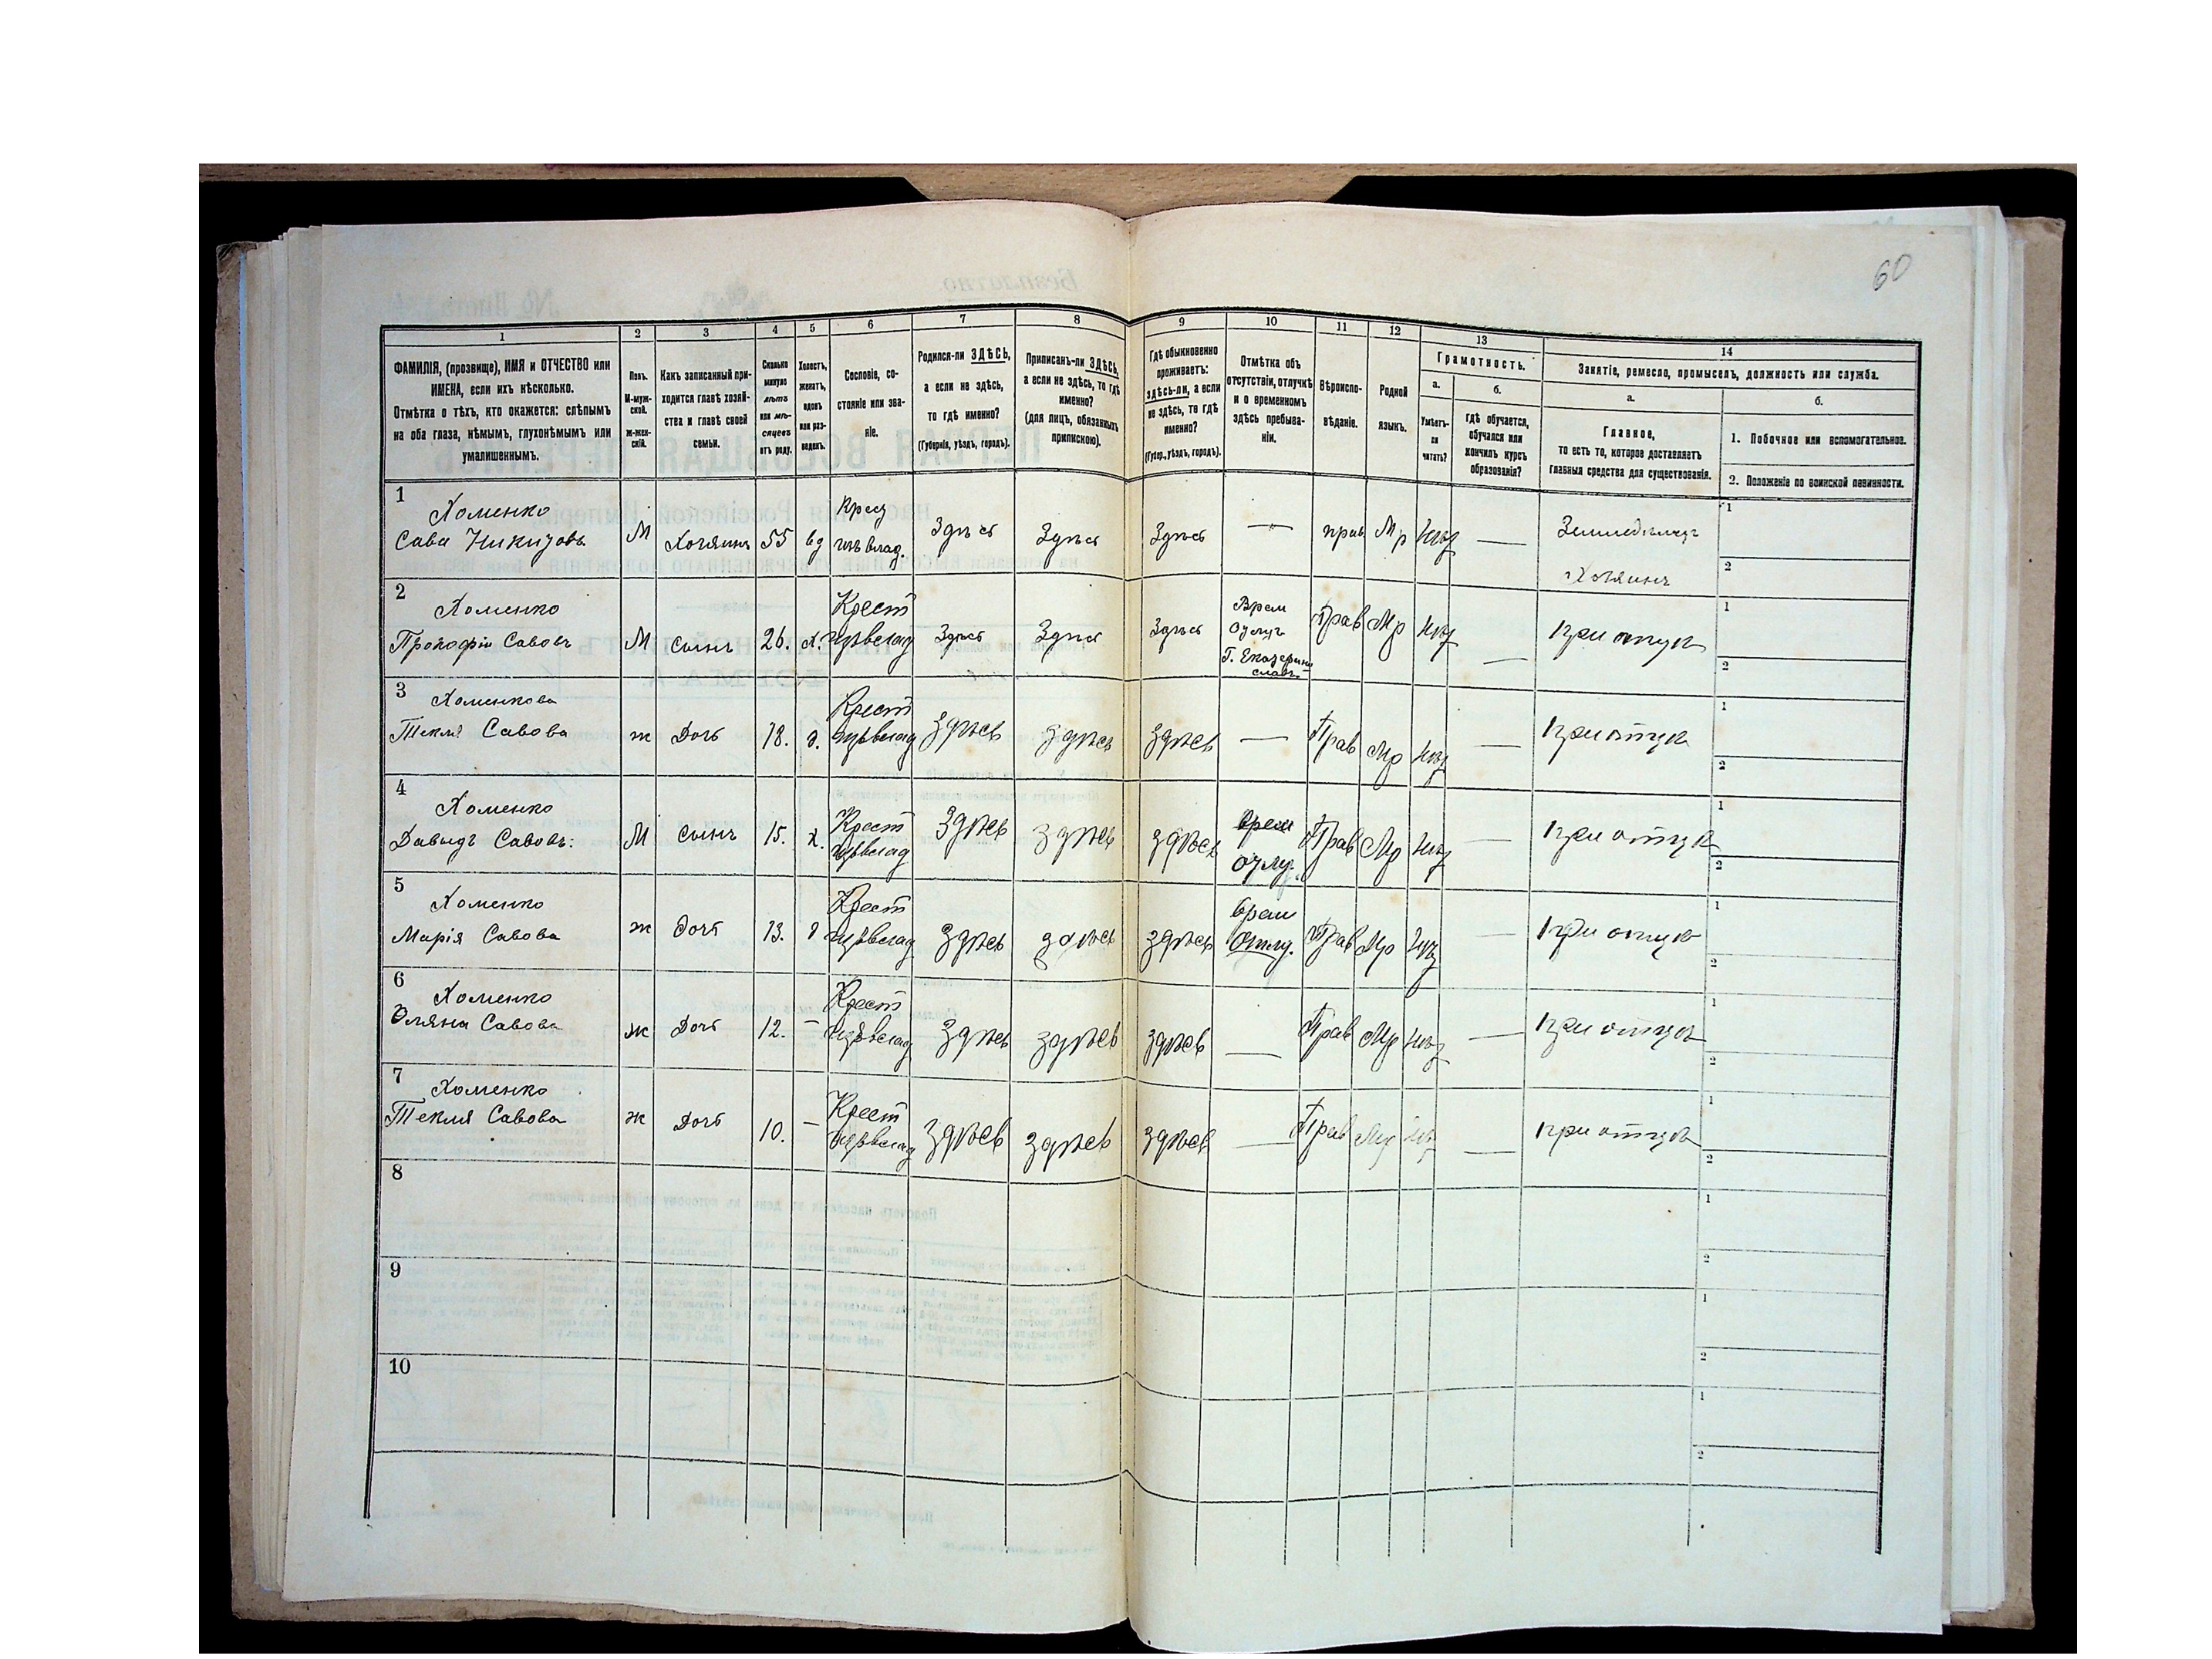 60
1
2
3
4
5
6
7
8
9
10
11
12
13
14
ФАМИЛІЯ, (прозвище), ИМЯ и ОТЧЕСТВО или
ИМЕНА, если ихъ нѣсколько.
Отмѣтка о тѣхъ, кто окажется: слѣпымъ
на оба глаза, нѣмымъ, глухонѣмымъ или
умалишеннымъ.
Полъ.
М-муж-
ской.
ж-жен-
скій.
Какъ записанный при-
ходится главѣ хозяй-
ства и главѣ своей
семьи.
Сколько
минуло
лѣтъ
или мѣ-
сяцевъ
отъ роду.
Холостъ,
женатъ,
вдовъ
или раз-
веденъ.
Сословіе, со-
стояніе или зва-
ніе.
Родился-ли ЗДѢСЬ,
а если не здѣсь,
то гдѣ именно?
(Губернія, уѣздъ, городъ).
Приписанъ-ли ЗДѢСЬ,
а если не здѣсь, то гдѣ
именно?
(для лицъ, обязанныхъ
припискою).
Гдѣ обыкновенно
проживаетъ:
здѣсь-ли, а если
не здѣсь, то гдѣ
именно?
(Губер., уѣздъ, городъ).
Отмѣтка объ
отсутствіи, отлучкѣ
и о временномъ
здѣсь пребыва-
ніи.
Вѣроиспо-
вѣданіе.
Родной
языкъ.
Грамотность.
а.
Умѣетъ-
ли
читать?
б.
Гдѣ обучается,
обучался или
кончилъ курсъ
образованія?
Занятіе, ремесло, промыселъ, должность или служба.
а.
Главное,
то есть то, которое доставляетъ
главныя средства для существованія.
б.
1. Побочное или вспомогательное.
2. Положеніе по воинской повинности.
1
Хоменко
Сава Никитовъ
М
Хозяинъ
55
вд
Крест
изъ влад.
Здѣсь
Здѣсь
Здѣсь
—
прав
Мр
Нѣт
—
Земледѣлецъ
Хозяинъ
1
2
2
Хоменко
Прокофій Савовъ
М
Сынъ
26.
х.
Крест
изъ влад
Здѣсь
Здѣсь
Здѣсь
Врем
Отлуч
Г. Екатерино
славъ
Прав
Мр
Нѣт
—
При отцѣ
1
2
3
Хоменкова
Текля Савова
ж
Дочь
18.
д.
Крест
изъ влад
Здѣсь
здѣсь
здѣсь
—
Прав
Мр
Нѣт
—
При отцѣ
1
2
4
Хоменко
Давыдъ Савовъ.
М
сынъ
15.
х.
Крест
изъ влад
Здѣсь
здѣсь
здѣсь
врем
отлу.
Прав
Мр
Нѣт
—
При отцѣ
1
2
5
Хоменко
Марія Савова
ж
Дочь
13.
д
Крест
изъ влад
здѣсь
здѣсь
здѣсь
врем
Отлу.
Прав
Мр
Нѣт
—
При отцѣ
1
2
6
Хоменко
Оляна Савова
ж
Дочь
12.
—
Крест
изъ влад
здѣсь
здѣсь
здѣсь
—
Прав
Мр
Нѣт
—
При отцѣ
1
2
7
Хоменко
Текля Савова
ж
Дочь
10.
—
Крест
изъ влад
Здѣсь
здѣсь
здѣсь
—
Прав
Мр
Нѣт
—
при отцѣ
1
2
8
1
2
9
1
2
10
1
2